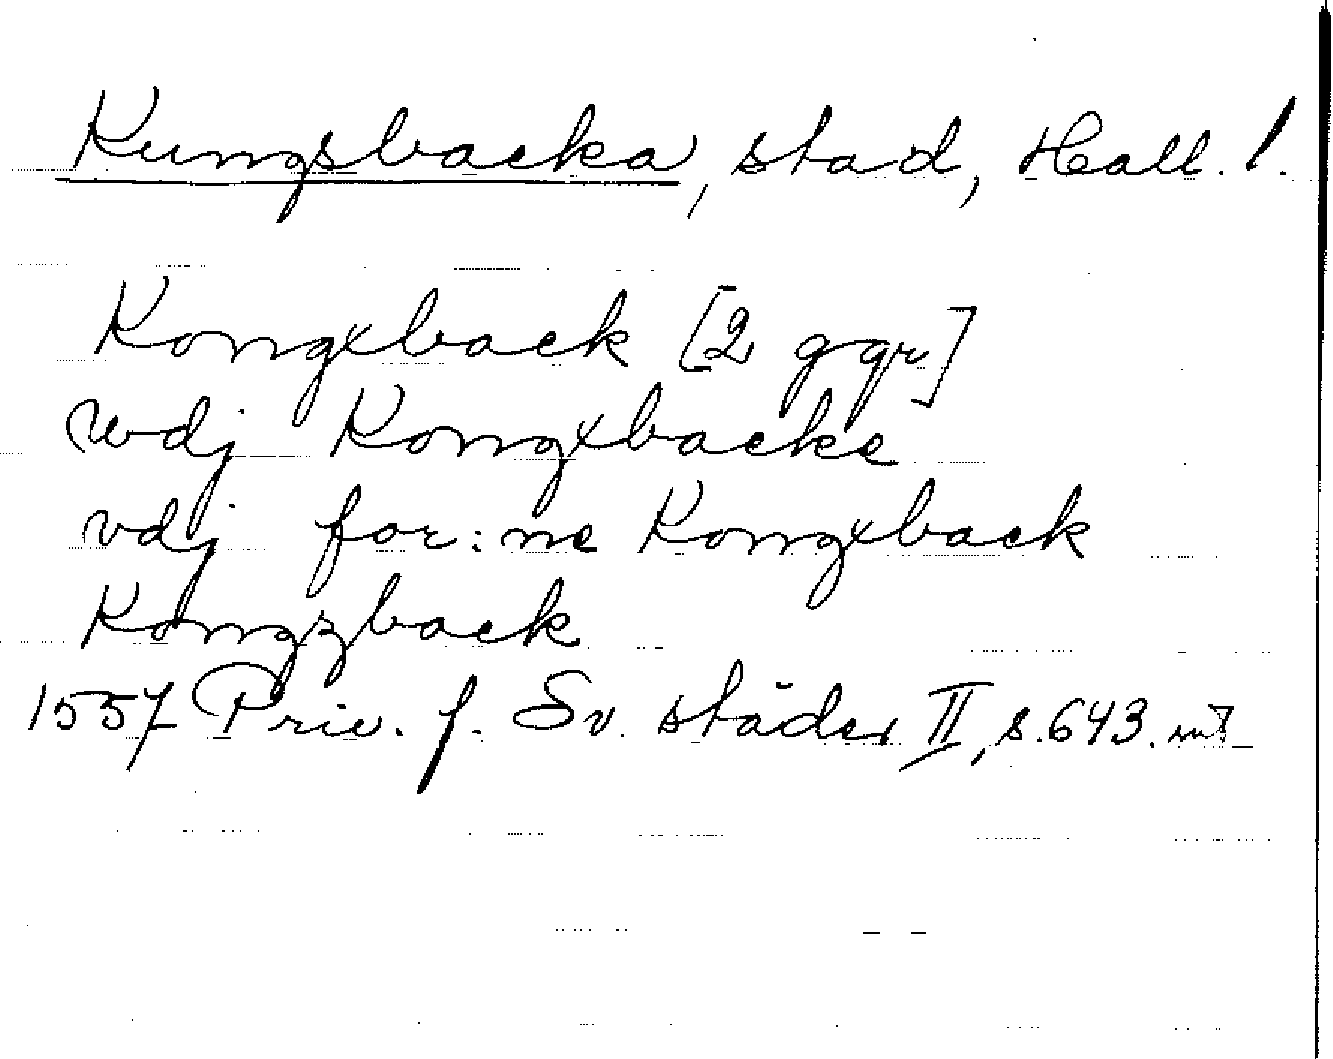 Kungsbacka, stad, Hall. l.
Kongxback [2 ggr]
wdj Kongxbacke
vdj for:ne Kongxback
Kongzback
1557 Priv. f. Sv. städer II, s. 643.